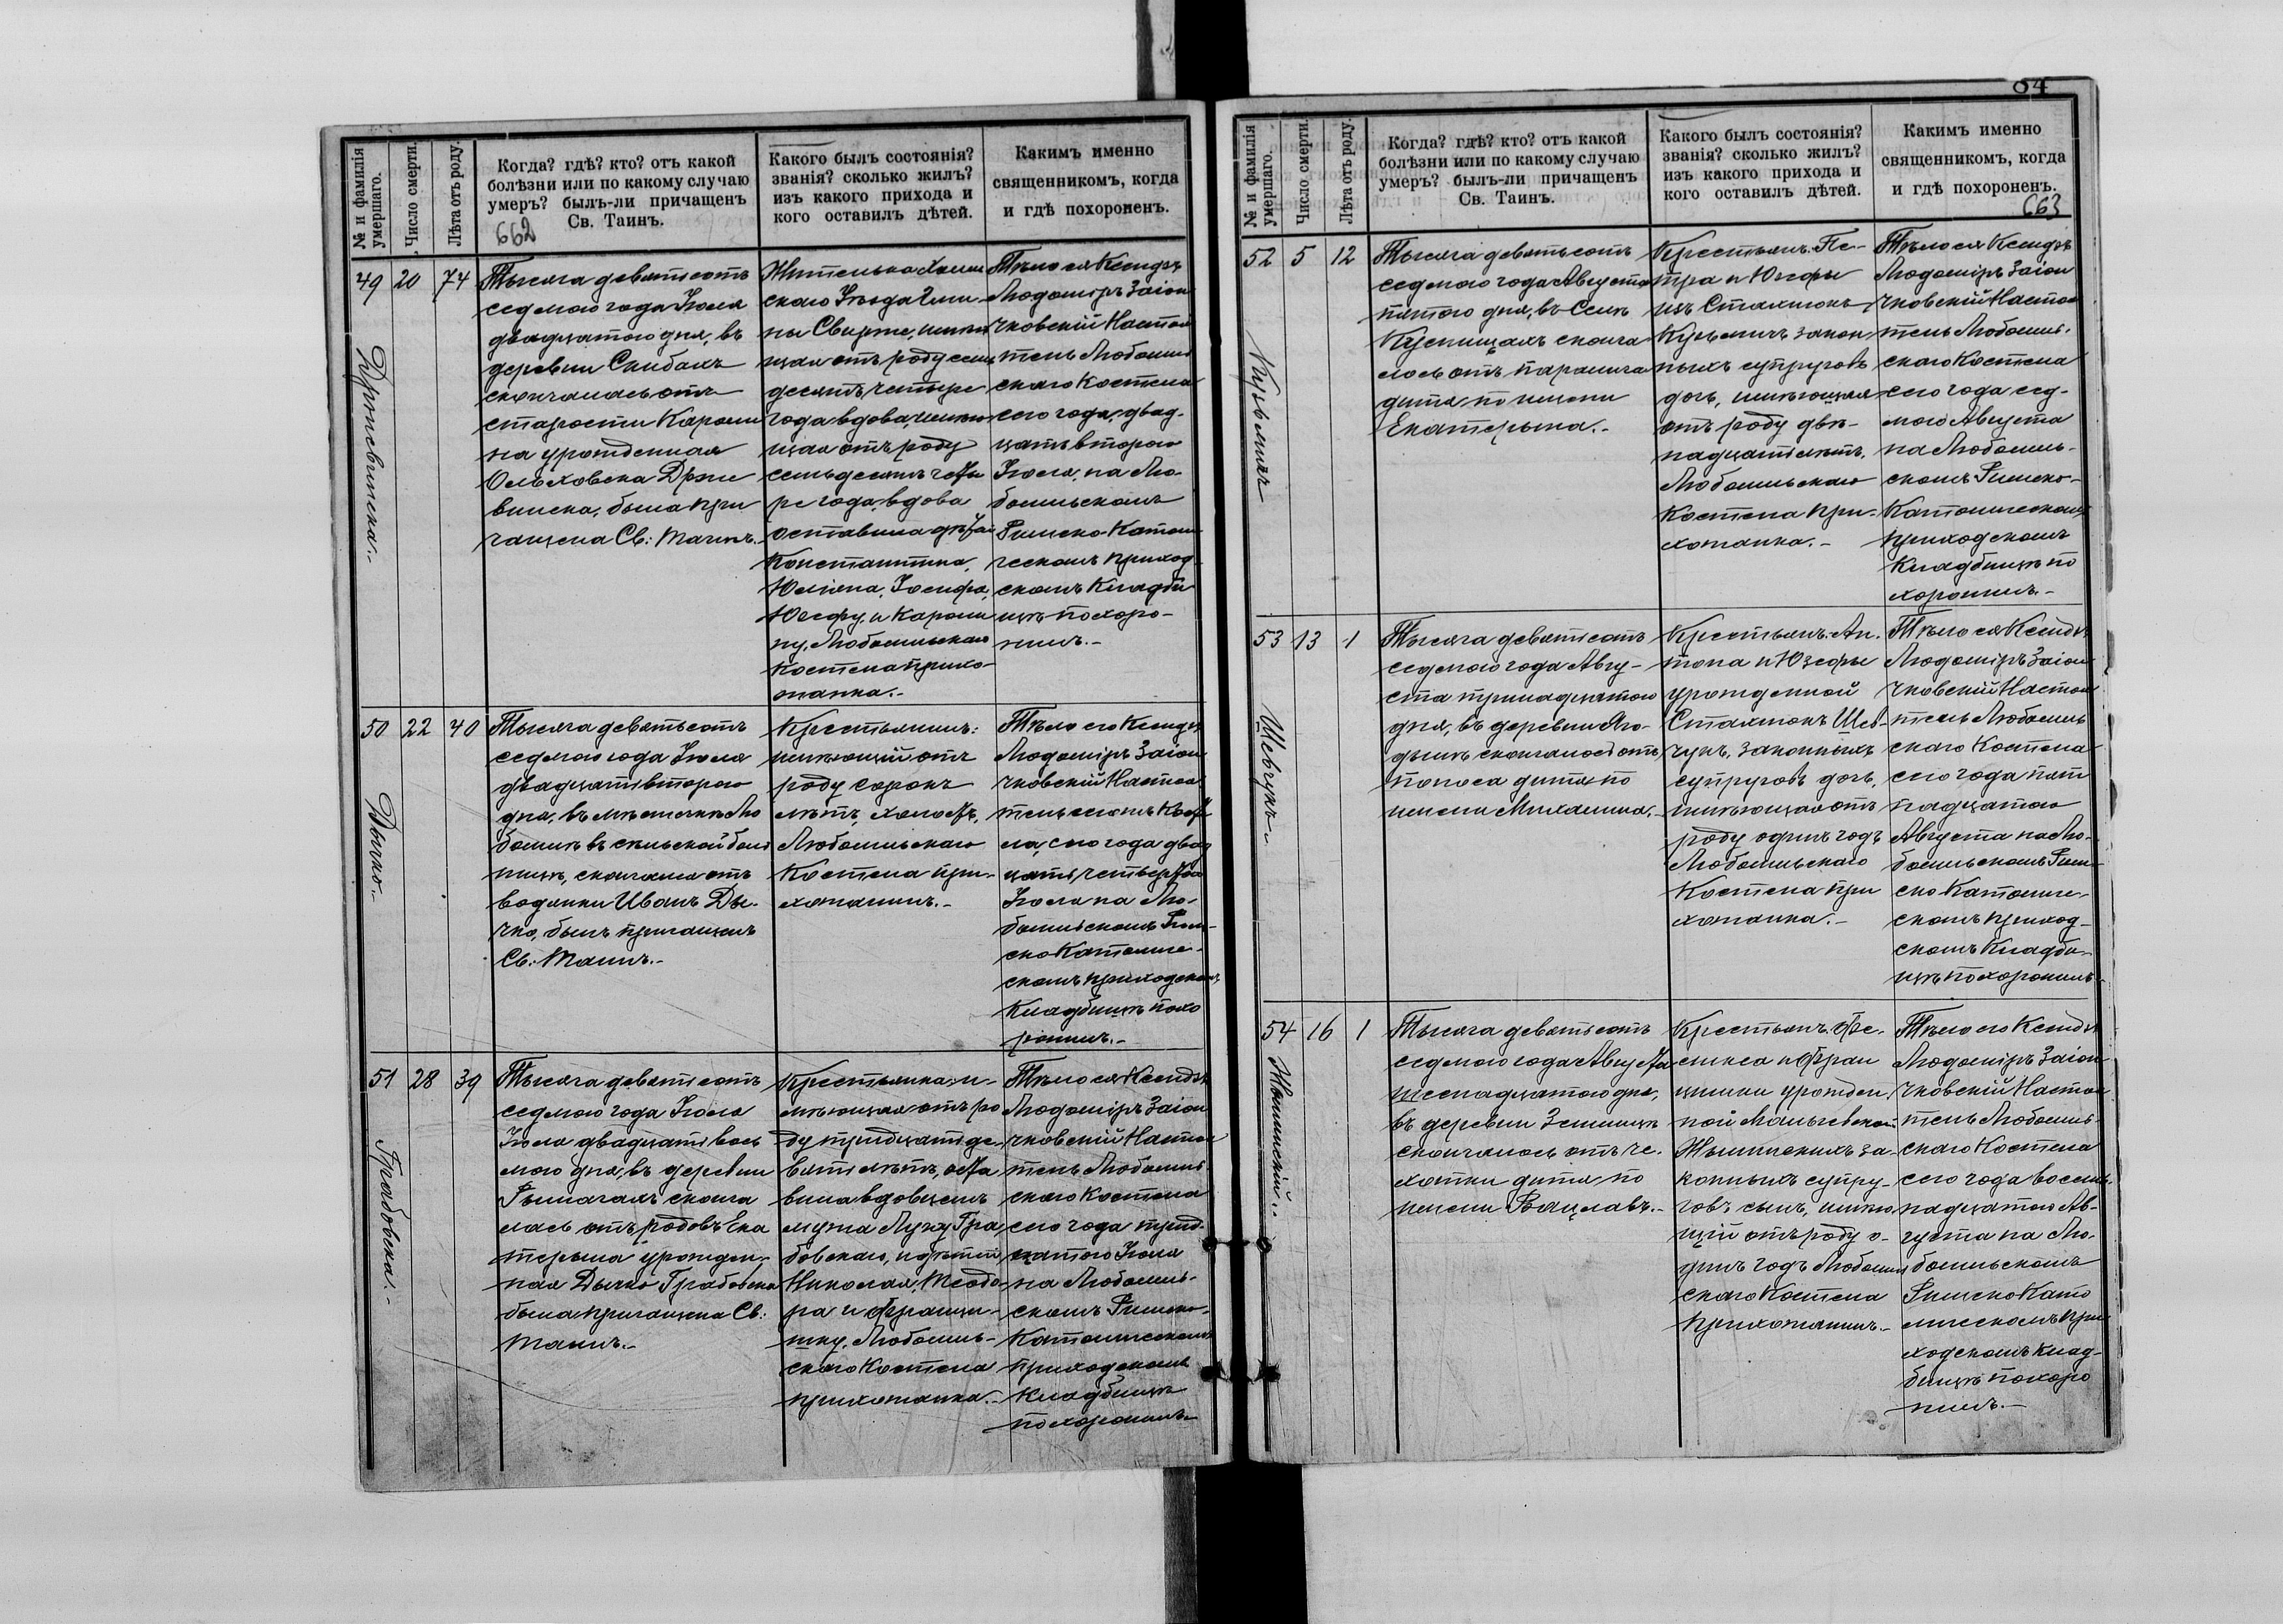 № и фамилія умершаго.
Число смерти.
Лѣта отъ роду.
Когда? гдѣ? кто? отъ какой
болѣзни или по какому случаю
умеръ? былъ-ли причащенъ
Св. Таинъ.
662
Какого былъ состоянія?
званія? сколько жилъ?
изъ какого прихода и
кого оставилъ дѣтей.
Какимъ именно
священникомъ, когда
и гдѣ похороненъ.
49 20 74
Тысяча девятьсотъ
седмого года Іюля
двадцатого дня, въ
деревни Скибахъ
скончалась отъ
старости Кароли
на урожденная
Ольховска
винска, была при
чащена Св: Таинъ.
Жителька Холм
скаго Уѣзда Гми
ны Свирже, имѣю
щая отъ роду семь
десятъ четыре
года вдова, имѣю
щая отъ роду
семьдесятъ четы
ре года, вдова
оставила дѣтей
Константина,
Юліяна, Іосифа,
Юзефу, и Кароли
ну, Любомльскаго
Костела прихо-
жанка.-
Тѣло ея Ксендзъ
Людоміръ Заіон
чковскій Настоя
тель Любомль
скаго Костела
сего года, двад-
цать второго
Іюля, на Лю-
бомльскомъ
Римско-Католи
ческомъ приход
скомъ Кладби
щѣ похоро-
нилъ.-
50 22 40
Дычко.-
Тысяча девятьсотъ
седмого года Іюля
двадцать второго
дня, въ мѣстечкѣ Лю
бомлѣ въ сельской боль
ницѣ, скончался отъ
водянки Иванъ Ды-
чко, былъ причащенъ
Св: Таинъ.-
Крестьянинъ:
имѣющій отъ
роду сорокъ
лѣтъ, холостъ,
Любомльскаго
Костела при-
хожанинъ.-
Тѣло его Ксендзъ
Людоміръ Заіон
чковскій Настоя
тель сего Косте
ла, сего года два
цать четвертого
Іюля на Лю-
бомльскомъ Рим-
ско Католиче-
скомъ приходскомъ
Кладбищѣ похо
ронилъ.-
51 28 39
Грабовска.-
Тысяча девятьсотъ
седмого года Іюля
Іюля двадцать вось
мого дня, въ деревни
Рымачахъ сконча
лась отъ родовъ Ека
терина урожден-
ная Дычко Грабовска
была причащена Св:
Таинъ.-
Крестьянка, и-
мѣющая отъ ро
ду тридцать де-
вять лѣтъ, оста
вила вдовцемъ
мужа Луку Гра
бовскаго, и дѣтей
Николая, Теодо-
ра и Францы-
шку, Любомль-
скаго Костела
прихожанка.-
Тѣло ея Ксендзъ
Людоміръ Заіон
чковскій Настоя
тель Любомль
скаго Костела
сего года трид-
цатого Іюля
на Любомль-
скомъ Римско-
Католическомъ
приходскомъ
Кладбищѣ
похоронилъ.-
84
№ и фамилія умершаго.
Число смерти.
Лѣта отъ роду.
Когда? гдѣ? кто? отъ какой
болѣзни или по какому случаю
умеръ? былъ-ли причащенъ
Св. Таинъ.
Какого былъ состоянія?
званія? сколько жилъ?
изъ какого прихода и
кого оставилъ дѣтей.
Какимъ именно
священникомъ, когда
и гдѣ похороненъ.
663
52 5 12
Кузьмичъ
Тысяча девятьсотъ
седмого года Августа
пятого дня, въ Селѣ
Куснищахъ сконча
лось отъ паралича
дитя по имени
Екатерина.-
Крестьянъ: Пе-
тра и Юзефы
изъ Сталиокъ
Кузьмичъ закон
ныхъ супруговъ
дочь, имѣющая
отъ роду двѣ-
надцать лѣтъ,
Любомльскаго
Костела при-
хожанка.-
Тѣло ея Ксендзъ
Людоміръ Заіон
чковскій Настоя
тель Любомль-
скаго Костела
сего года сед-
мого Августа
на Любомль-
скомъ Римско-
Католическомъ
приходскомъ
Кладбищѣ по
хоронилъ.-
53 13 1
Шевчукъ.-
Тысяча девятьсотъ
седмого года Авгу-
ста тринадцатого
дня, въ деревни
скончалось отъ
поноса дитя по
имени Михалина.-
Крестьянъ: Ан-
тона и Юзефы
урожденной
Сталиокъ Шев-
чукъ, законныхъ
супруговъ дочь,
имѣющая отъ
роду одинъ годъ
Любомльскаго
Костела при
хожанка.-
Тѣло ея Ксендзъ
Людоміръ Заіон
чковскій Настоя
тель Любомль
скаго Костела
сего года пят
надцатого
Августа на Лю-
бомльскомъ Рим-
ско Католиче-
скомъ приход-
скомъ Кладби-
щѣ похоронилъ.-
54 16 1
Тысяча девятьсотъ
седмого года Августа
шеснадцатого дня,
въ деревни Землицѣ
скончалось отъ че-
хотки дитя по
имени Вацлавъ.-
Крестьянъ: Фе-
ликса и Фран
цишки урожден
ной Мальчевской
за-
конныхъ супру-
говъ сынъ, имѣю
щій отъ роду о-
динъ годъ Любомль
скаго Костела
прихожанинъ.-
Тѣло его Ксендзъ
Людоміръ Заіон
чковскій Настоя
тель Любомль
скаго Костела
сего года восемь
надцатого Ав-
густа на Лю-
бомльскомъ
Римско Като
лическомъ при
ходскомъ клад-
бищѣ похоро
нилъ.-